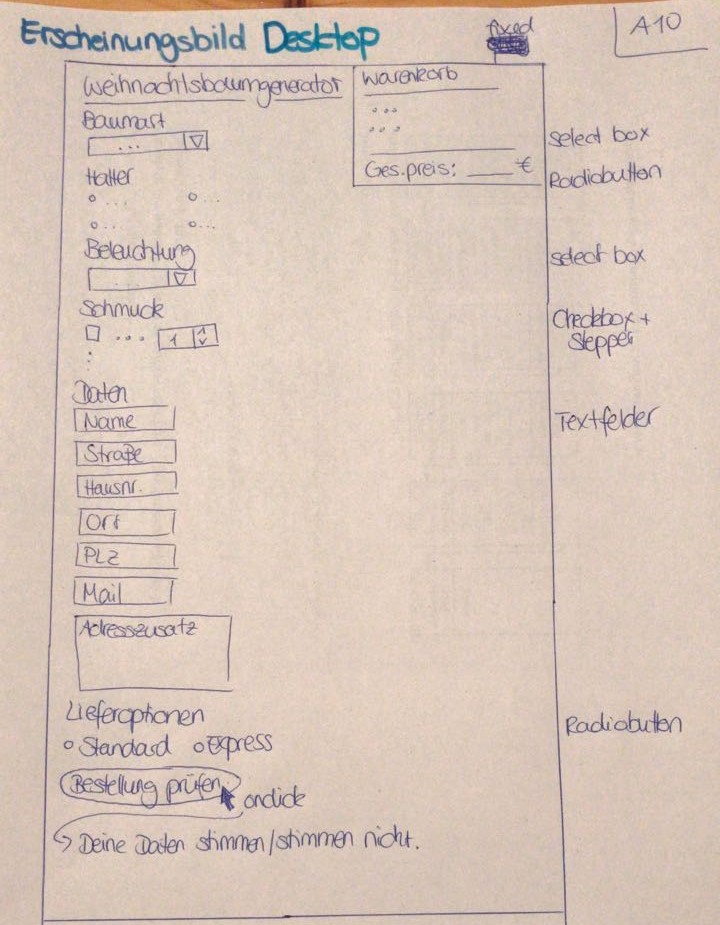 Erscheinungsbild Desktop
fixed
A10
Weihnachtsbaumgenerator
Warenkorb
...
...
Ges.preis: ____ €
Baumart
...
select box
Halter
... ...
... ...
Radiobutton
Beleuchtung
...
select box
Schmuck
... 1
Checkbox +
Stepper
Daten
Name
Textfelder
Straße
Hausnr.
Ort
PLZ
Mail
Adresszusatz
Lieferoptionen
Radiobutton
Standard Express
Bestellung prüfen
onclick
Deine Daten stimmen/stimmen nicht.